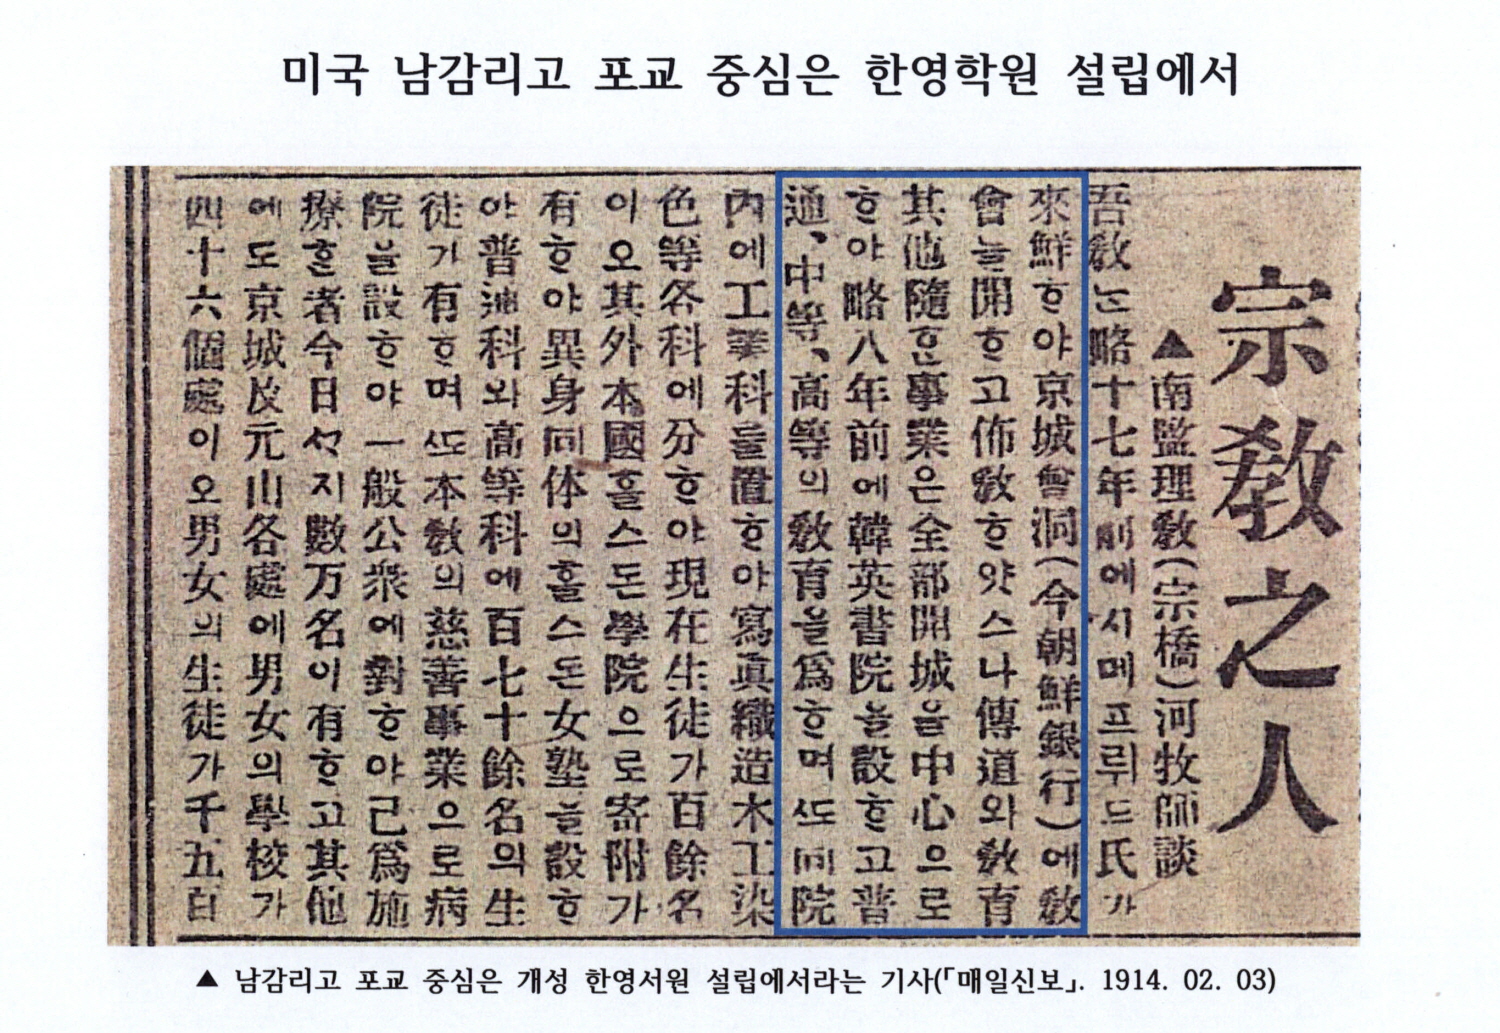 미국 남감리고 포교 중심은 한영학원 설립에서
宗敎之人
▲南監理敎(宗橋)河牧師談
吾敎는略十七年前에시메프뤼드氏가
來鮮ᄒᆞ야京城會洞(今朝鮮銀行)에敎
會늘開ᄒᆞ고佈敎ᄒᆞ얏스나傳道와敎育
其他隨ᄒᆞᆫ事業은全部開城을中心으로
ᄒᆞ야略八年前에韓英書院을設ᄒᆞ고普
通、中等、高等의敎育을爲ᄒᆞ며ᄯᅩ同院
內에工業科을置ᄒᆞ야寫眞織造木工染
色等各科에分ᄒᆞ야現在生徒가百餘名
이오其外本國ᄒᆞᆯ스돈學院으로寄附가
有ᄒᆞ야異身同体의ᄒᆞᆯ스돈女塾을設ᄒᆞ
야普通科와高等科에百七十餘名의生
徒가有ᄒᆞ며ᄯᅩ本敎의慈善事業으로病
院을設ᄒᆞ야一般公衆에對ᄒᆞ야己爲施
療ᄒᆞᆫ者今日ᄭᆞ지數万名이有ᄒᆞ고其他
에도京城及元山各處에男女의學校가
四十六個處이오男女의生徒가千五百
▲ 남감리고 포교 중심은 개성 한영서원 설립에서라는 기사(「매일신보」. 1914. 02. 03)